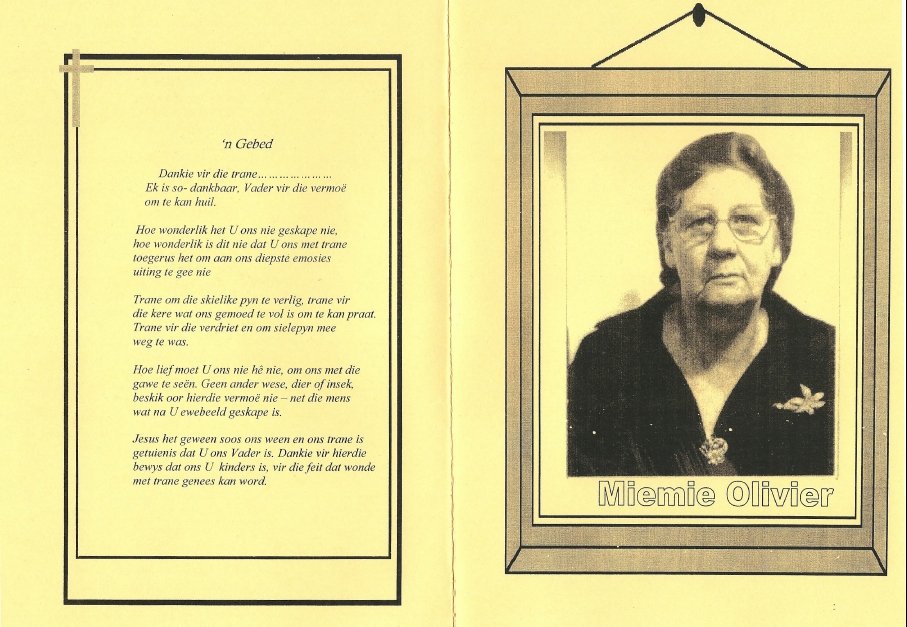 ‘n Gebed
Dankie vir die trane…………………
Ek is so- dankbaar, Vader vir die vermoë
om te kan huil.
Hoe wonderlik het U ons nie geskape nie,
hoe wonderlik is dit nie dat U ons met trane
toegerus het om aan ons diepste emosies
uiting te gee nie
Trane om die skielike pyn te verlig, trane vir
die kere wat ons gemoed te vol is om te kan praat.
Trane vir die verdriet en om sielepyn mee
weg te was.
Hoe lief moet U ons nie hê nie, om ons met die
gawe te seën. Geen ander wese, dier of insek,
beskik oor hierdie vermoë nie – net die mens
wat na U ewebeeld geskape is.
Jesus het geween soos ons ween en ons trane is
getuienis dat U ons Vader is. Dankie vir hierdie
bewys dat ons U kinders is, vir die feit dat wonde
met trane genees kan word.
Miemie Olivier